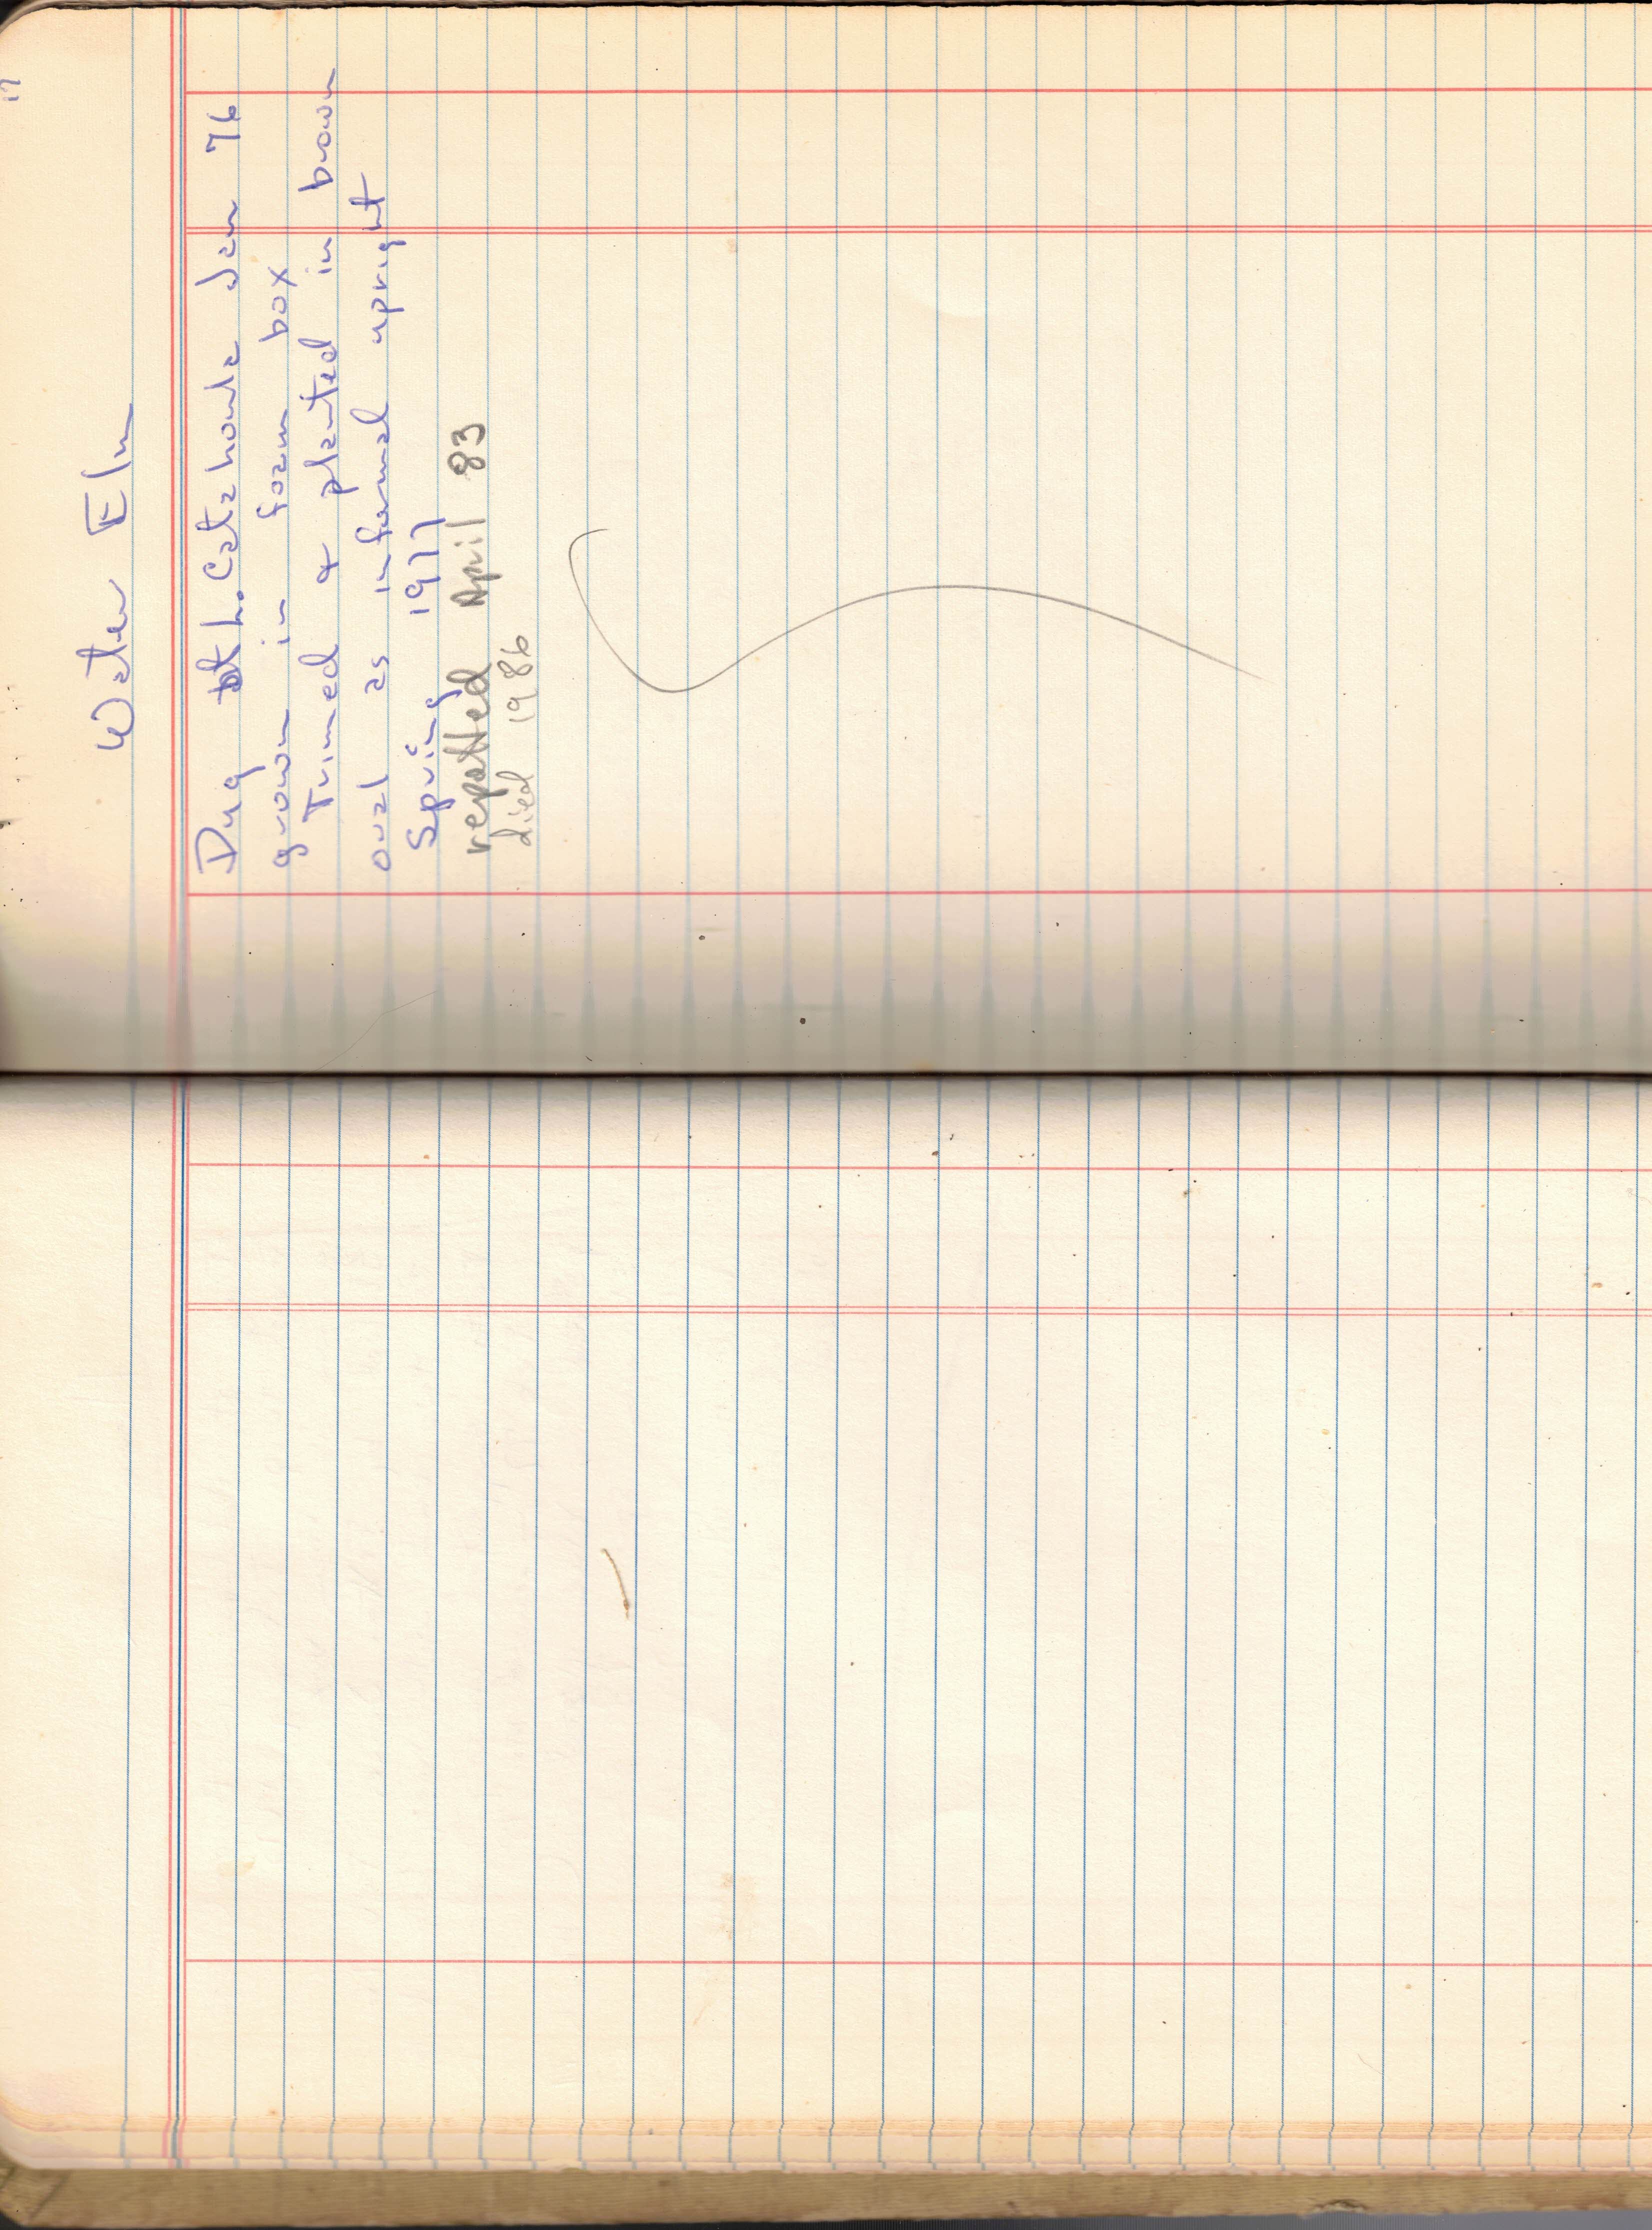 17
Water Elm
Dug at L. Catahoula Jan 76
grown in foam box
Trimed & planted in brown
oval as informal upright
Spring 1977
repotted April 83
died 1986